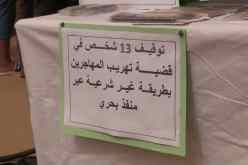 توقيف 13 شخص في
قضية تهريب المهاجرين
بطريقة غير شرعية عبر
منفذ بحري